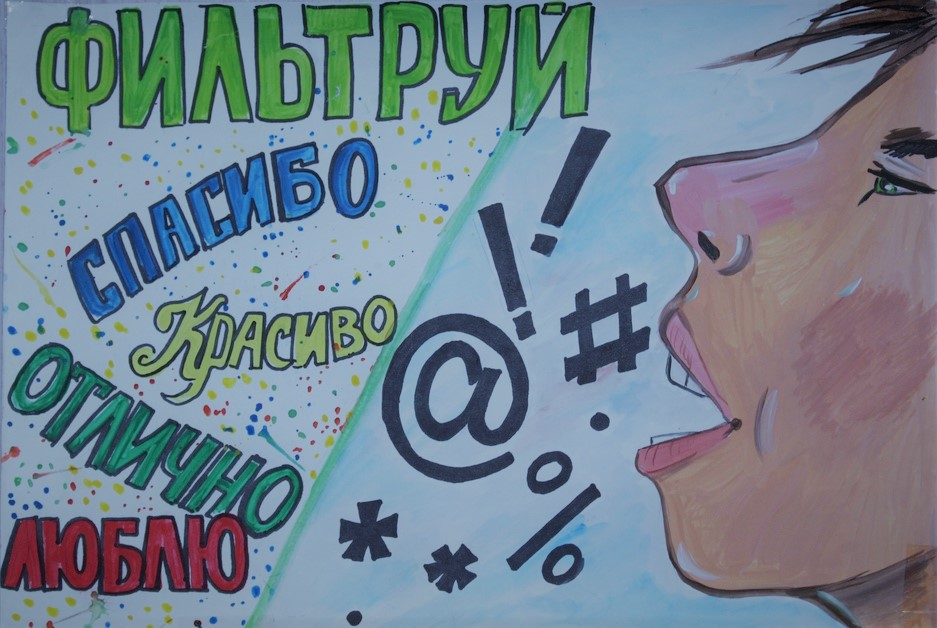 ФИЛЬТРУЙ
СПАСИБО
КРАСИВО
ОТЛИЧНО
ЛЮБЛЮ
!!
@#
%
**